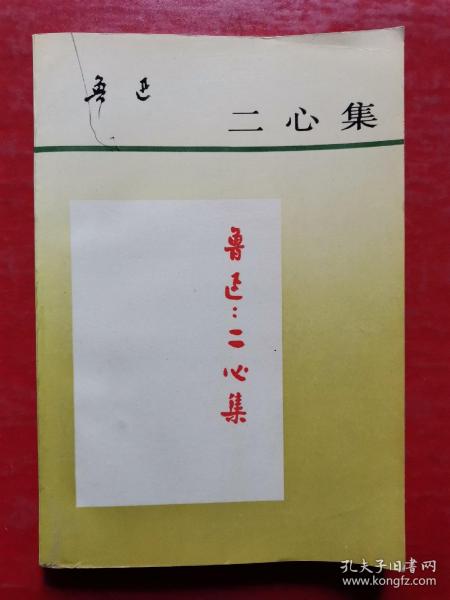 鲁迅
二心集
鲁迅：二心集
孔夫子旧书网
www.kongfz.com